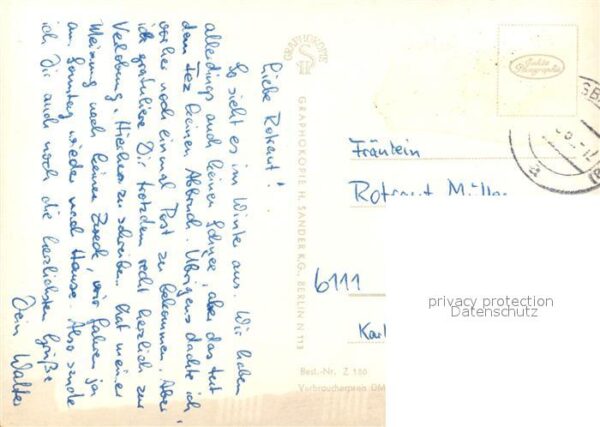 Liebe Rotraut!
So sieht es im Winter aus. Wir haben
allerdings auch keinen Schnee, aber das tut
dem Fez keinen Abbruch. Übrigens dachte ich
vorher noch einmal Post zu bekommen. Aber
ich gratuliere Dir trotzdem recht herzlich zur
Verlobung. Hierher zu schreiben hat meiner
Meinung nach keinen Zweck, wir fahren ja
am Sonntag wieder nach Hause. Also sende
ich Dir auch noch die herzlichsten Grüße
Dein Walter
GRAPHOKOPIE
GRAPHOKOPIE H. SANDER K.G., BERLIN N 113
Echte Photographie
Fräulein
Rotraut Müller
6111
Best.-Nr. Z 160
Verbraucherpreis DM
privacy protection
Datenschutz